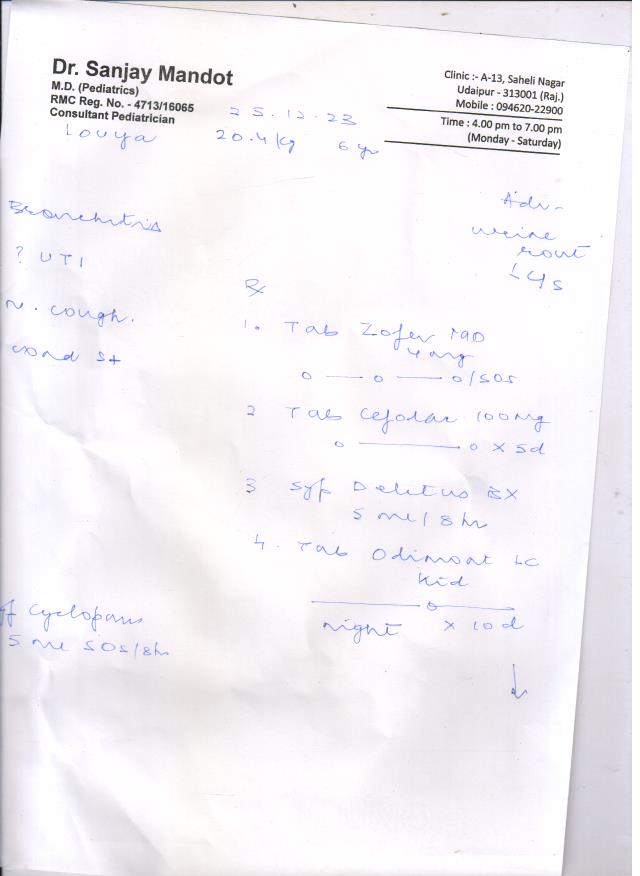 Dr. Sanjay Mandot
M.D. (Pediatrics)
RMC Reg. No. - 4713/16065
Consultant Pediatrician
Clinic :- A-13, Saheli Nagar
Udaipur - 313001 (Raj.)
Mobile : 094620-22900
Time : 4.00 pm to 7.00 pm
(Monday - Saturday)
25.12.23
20.4 kg 6 yr
Adv-
urine
rout
c/s
Bronchitis
? UTI
cough.
Rx
1. Tab Zofer MD
4 mg
o — o — o/SOS
2 Tab Cefolac 100mg
o — o x 5d
3 Syp Deletus BX
5 ml / 8 hr
4. Tab Odimont LC
Kid
o
night x 10 d
Cyclopam
5 ml SOS/8hr
↓